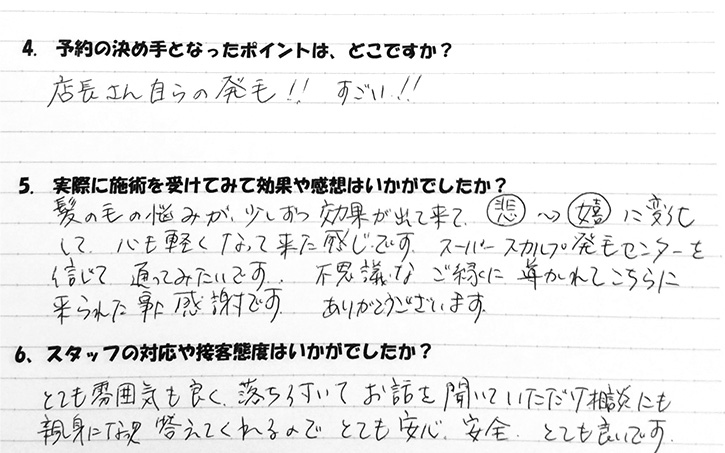 4. 予約の決め手となったポイントは、どこですか？
店長さん自らの発毛!! すごい!!
5. 実際に施術を受けてみて効果や感想はいかがでしたか？
髪の毛の悩みが、少しずつ効果が出て来て、悲〜嬉に変化
して、心も軽くなって来た感じです。スーパースカルプ発毛センターを
信じて通ってみたいです。不思議なご縁に導かれてこちらに
来られた事に感謝です。ありがとうございます。
6、スタッフの対応や接客態度はいかがでしたか？
とても雰囲気も良く、落ち付いてお話を聞いていただけ相談にも
親身になって答えてくれるのでとても安心、安全、とても良いです。